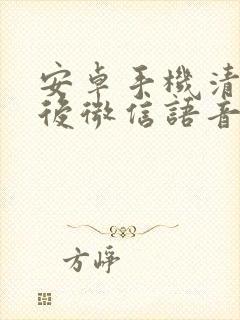 安卓手機清
後微信語音
方崢